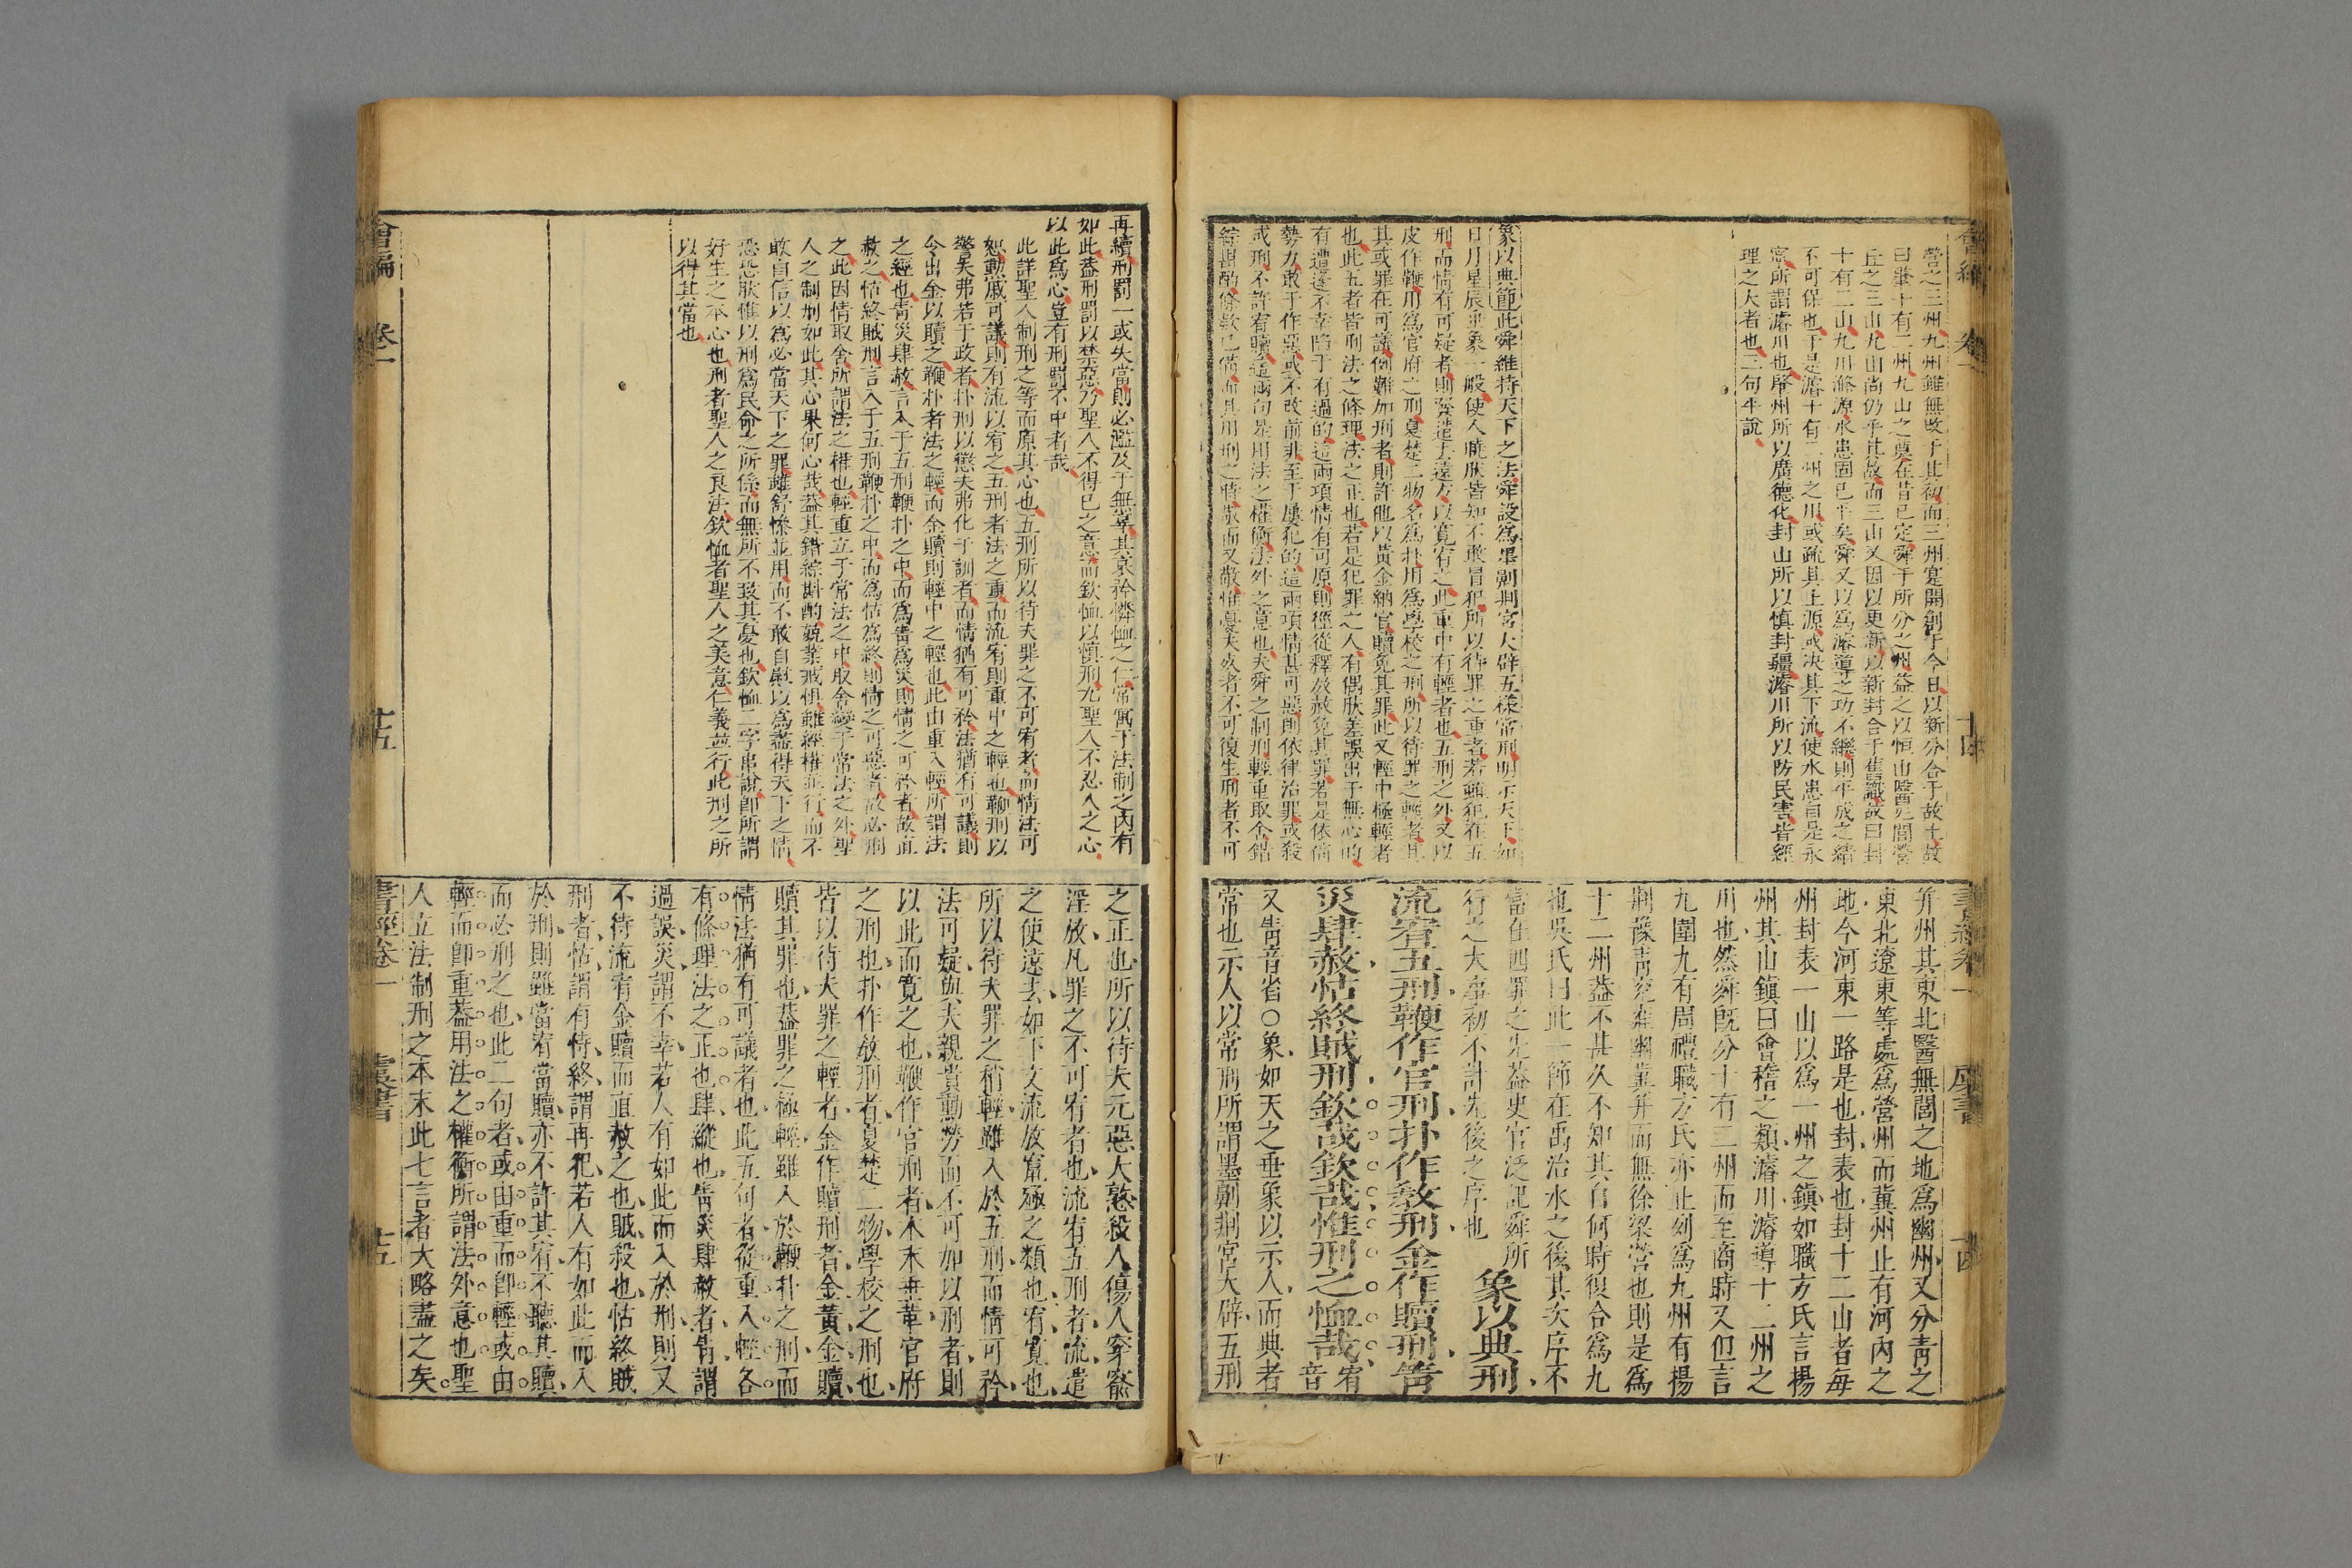 營之三州九州雖無改于其初而三州寔開創于今日以新分合于故土故
曰肇十有二州九山之奠在昔已定舜于所分之州益之以恒山醫無閭營
丘之三山九山尚仍乎其故而三山又因以更新以新封合于舊識故曰封
十有二山九川滌源水患固已平矣舜又以為濬導之功不繼則平成之績
不可保也于是濬十有二州之川或疏其上源或決其下流使水患自是永
寧所謂濬川也肇州所以廣德化封山所以慎封疆濬川所以防民害皆經
理之大者也三句平說
象以典節此舜維持天下之法舜設為墨劓剕宮大辟五樣常刑明示天下如
日月星辰垂象一般使人曉然皆知不敢冒犯所以待罪之重者若雖犯在五
刑而情有可疑者則發遣去遠方以寬宥之此重中有輕者也五刑之外又以
皮作鞭用為官府之刑夏楚二物名為扑用為學校之刑所以待罪之輕者其
其或罪在可議例難加刑者則許他以黃金納官贖免其罪此又輕中極輕者
也此五者皆刑法之條理法之正也若是犯罪之人有偶然差誤出于無心的
有遭逢不幸陷于有過的這兩項情有可原則徑從釋放赦免其罪若是依倚
勢力敢于作惡或不改前非至于屢犯的這兩項情甚可惡則依律治罪或殺
或刑不許宥贖這兩句是用法之權衡法外之意也夫舜之制刑輕重取舍錯
綜斟酌條款已備而其用刑之時敬而又敬惟憂夫死者不可復生刑者不可
并州其東北醫無閭之地為幽州又分青之
東北遼東等處為營州而冀州止有河內之
地今河東一路是也封表也封十二山者每
州封表一山以為一州之鎮如職方氏言揚
州其山鎮曰會稽之類濬川濬導十二州之
川也然舜既分十有二州而至商時又但言
九圍九有周禮職方氏亦止列為九州有揚
荊豫青兗雍幽冀并而無徐梁營也則是為
十二州蓋不甚久不知其自何時復合為九
也吳氏曰此一節在禹治水之後其次序不
當在四罪之先蓋史官泛記舜所
行之大事初不計先後之序也 象以典刑
流宥五刑鞭作官刑扑作教刑金作贖刑眚
災肆赦怙終賊刑欽哉欽哉惟刑之恤哉 宥音
又眚音省○象如天之垂象以示人而典者
常也示人以常刑所謂墨劓剕宮大辟五刑
再續刑罰一或失當則必濫及于無辜其哀矜憐恤之仁常寓于法制之內有
如此蓋刑罰以禁惡乃聖人不得已之意而欽恤以慎刑尤聖人不忍人之心
以此為心豈有刑罰不中者哉
此詳聖人制刑之等而原其心也五刑所以待夫罪之不可宥者而情法可
恕勳戚可議則有流以宥之五刑者法之重而流宥則重中之輕也鞭刑以
警夫弗若于政者扑刑以懲夫弗化于訓者而情猶有可矜法猶有可議則
令出金以贖之鞭扑者法之輕而金贖則輕中之輕也此由重入輕所謂法
之經也眚災肆赦言入于五刑鞭扑之中而為眚為災則情之可矜者故直
赦之怙終賊刑言入于五刑鞭扑之中而為怙為終則情之可惡者故必刑
之此因情取舍所謂法之權也輕重立于常法之中取舍變于常法之外聖
人之制刑如此其心果何心哉蓋其錯綜斟酌兢業戒惧雖經權並行而不
敢自信以為必當天下之罪雖舒慘並用而不敢自慰以為盡得天下之情
恐恐然惟以刑為民命之所係而無所不致其憂也欽恤二字串說卽所謂
好生之本心也刑者聖人之良法欽恤者聖人之美意仁義並行此刑之所
以得其當也
會編 卷一 十五
之正也所以待夫元惡大憝殺人傷人穿窬
淫放凡罪之不可宥者也流宥五刑者流遣
之使遠去如下文流放竄殛之類也宥寬也
所以待夫罪之稍輕雖入於五刑而情可矜
法可疑與夫親貴勳勞而不可加以刑者則
以此而寬之也鞭作官刑者木末垂革官府
之刑也扑作教刑者夏楚二物學校之刑也
皆以待夫罪之輕者金作贖刑者金黃金贖
贖其罪也蓋罪之極輕雖入於鞭扑之刑而
情法猶有可議者也此五句者從重入輕各
有條理法之正也肆縱也眚災肆赦者眚謂
過誤災謂不幸若人有如此而入於刑則又
不待流宥金贖而直赦之也賊殺也怙終賊
刑者怙謂有恃終謂再犯若人有如此而入
於刑則雖當宥當贖亦不許其宥不聽其贖
而必刑之也此二句者或由重而卽輕或由
輕而卽重蓋用法之權衡所謂法外意也聖
人立法制刑之本末此七言者大略盡之矣
書經卷一 虞書 十五